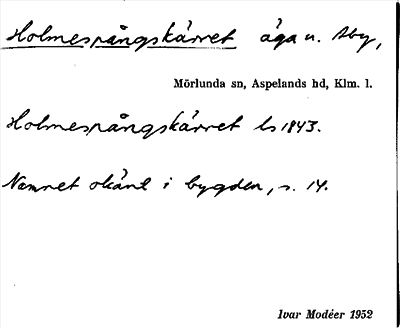 Holmesprångskärret äga u. Åby,
Mörlunda sn, Aspelands hd, Klm. l.
Holmesprångskärret ls 1843.
Namnet okänt i bygden, s. 14.
Ivar Modéer 1952